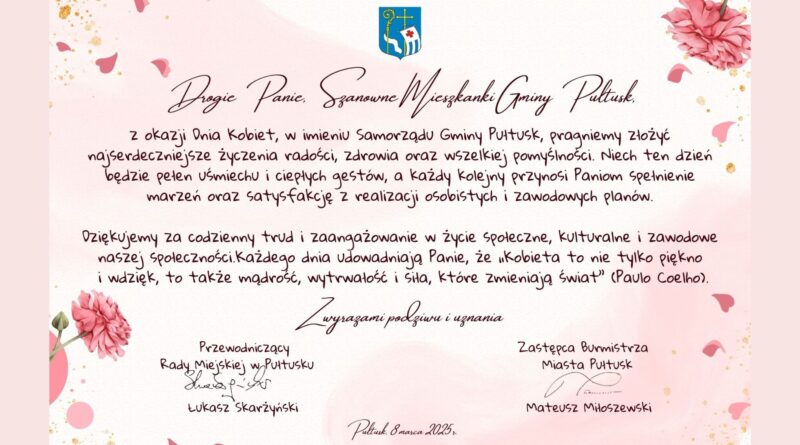 Drogie Panie, Szanowne Mieszkanki Gminy Pułtusk,
z okazji Dnia Kobiet, w imieniu Samorządu Gminy Pułtusk, pragniemy złożyć
najserdeczniejsze życzenia radości, zdrowia oraz wszelkiej pomyślności. Niech ten dzień
będzie pełen uśmiechu i ciepłych gestów, a każdy kolejny przynosi Paniom spełnienie
marzeń oraz satysfakcję z realizacji osobistych i zawodowych planów.
Dziękujemy za codzienny trud i zaangażowanie w życie społeczne, kulturalne i zawodowe
naszej społeczności.Każdego dnia udowadniają Panie, że „Kobieta to nie tylko piękno
i wdzięk, to także mądrość, wytrwałość i siła, które zmieniają świat” (Paulo Coelho).
Z wyrazami podziwu i uznania
Przewodniczący
Rady Miejskiej w Pułtusku
Łukasz Skarżyński
Zastępca Burmistrza
Miasta Pułtusk
Mateusz Miłoszewski
Pułtusk, 8 marca 2025r.